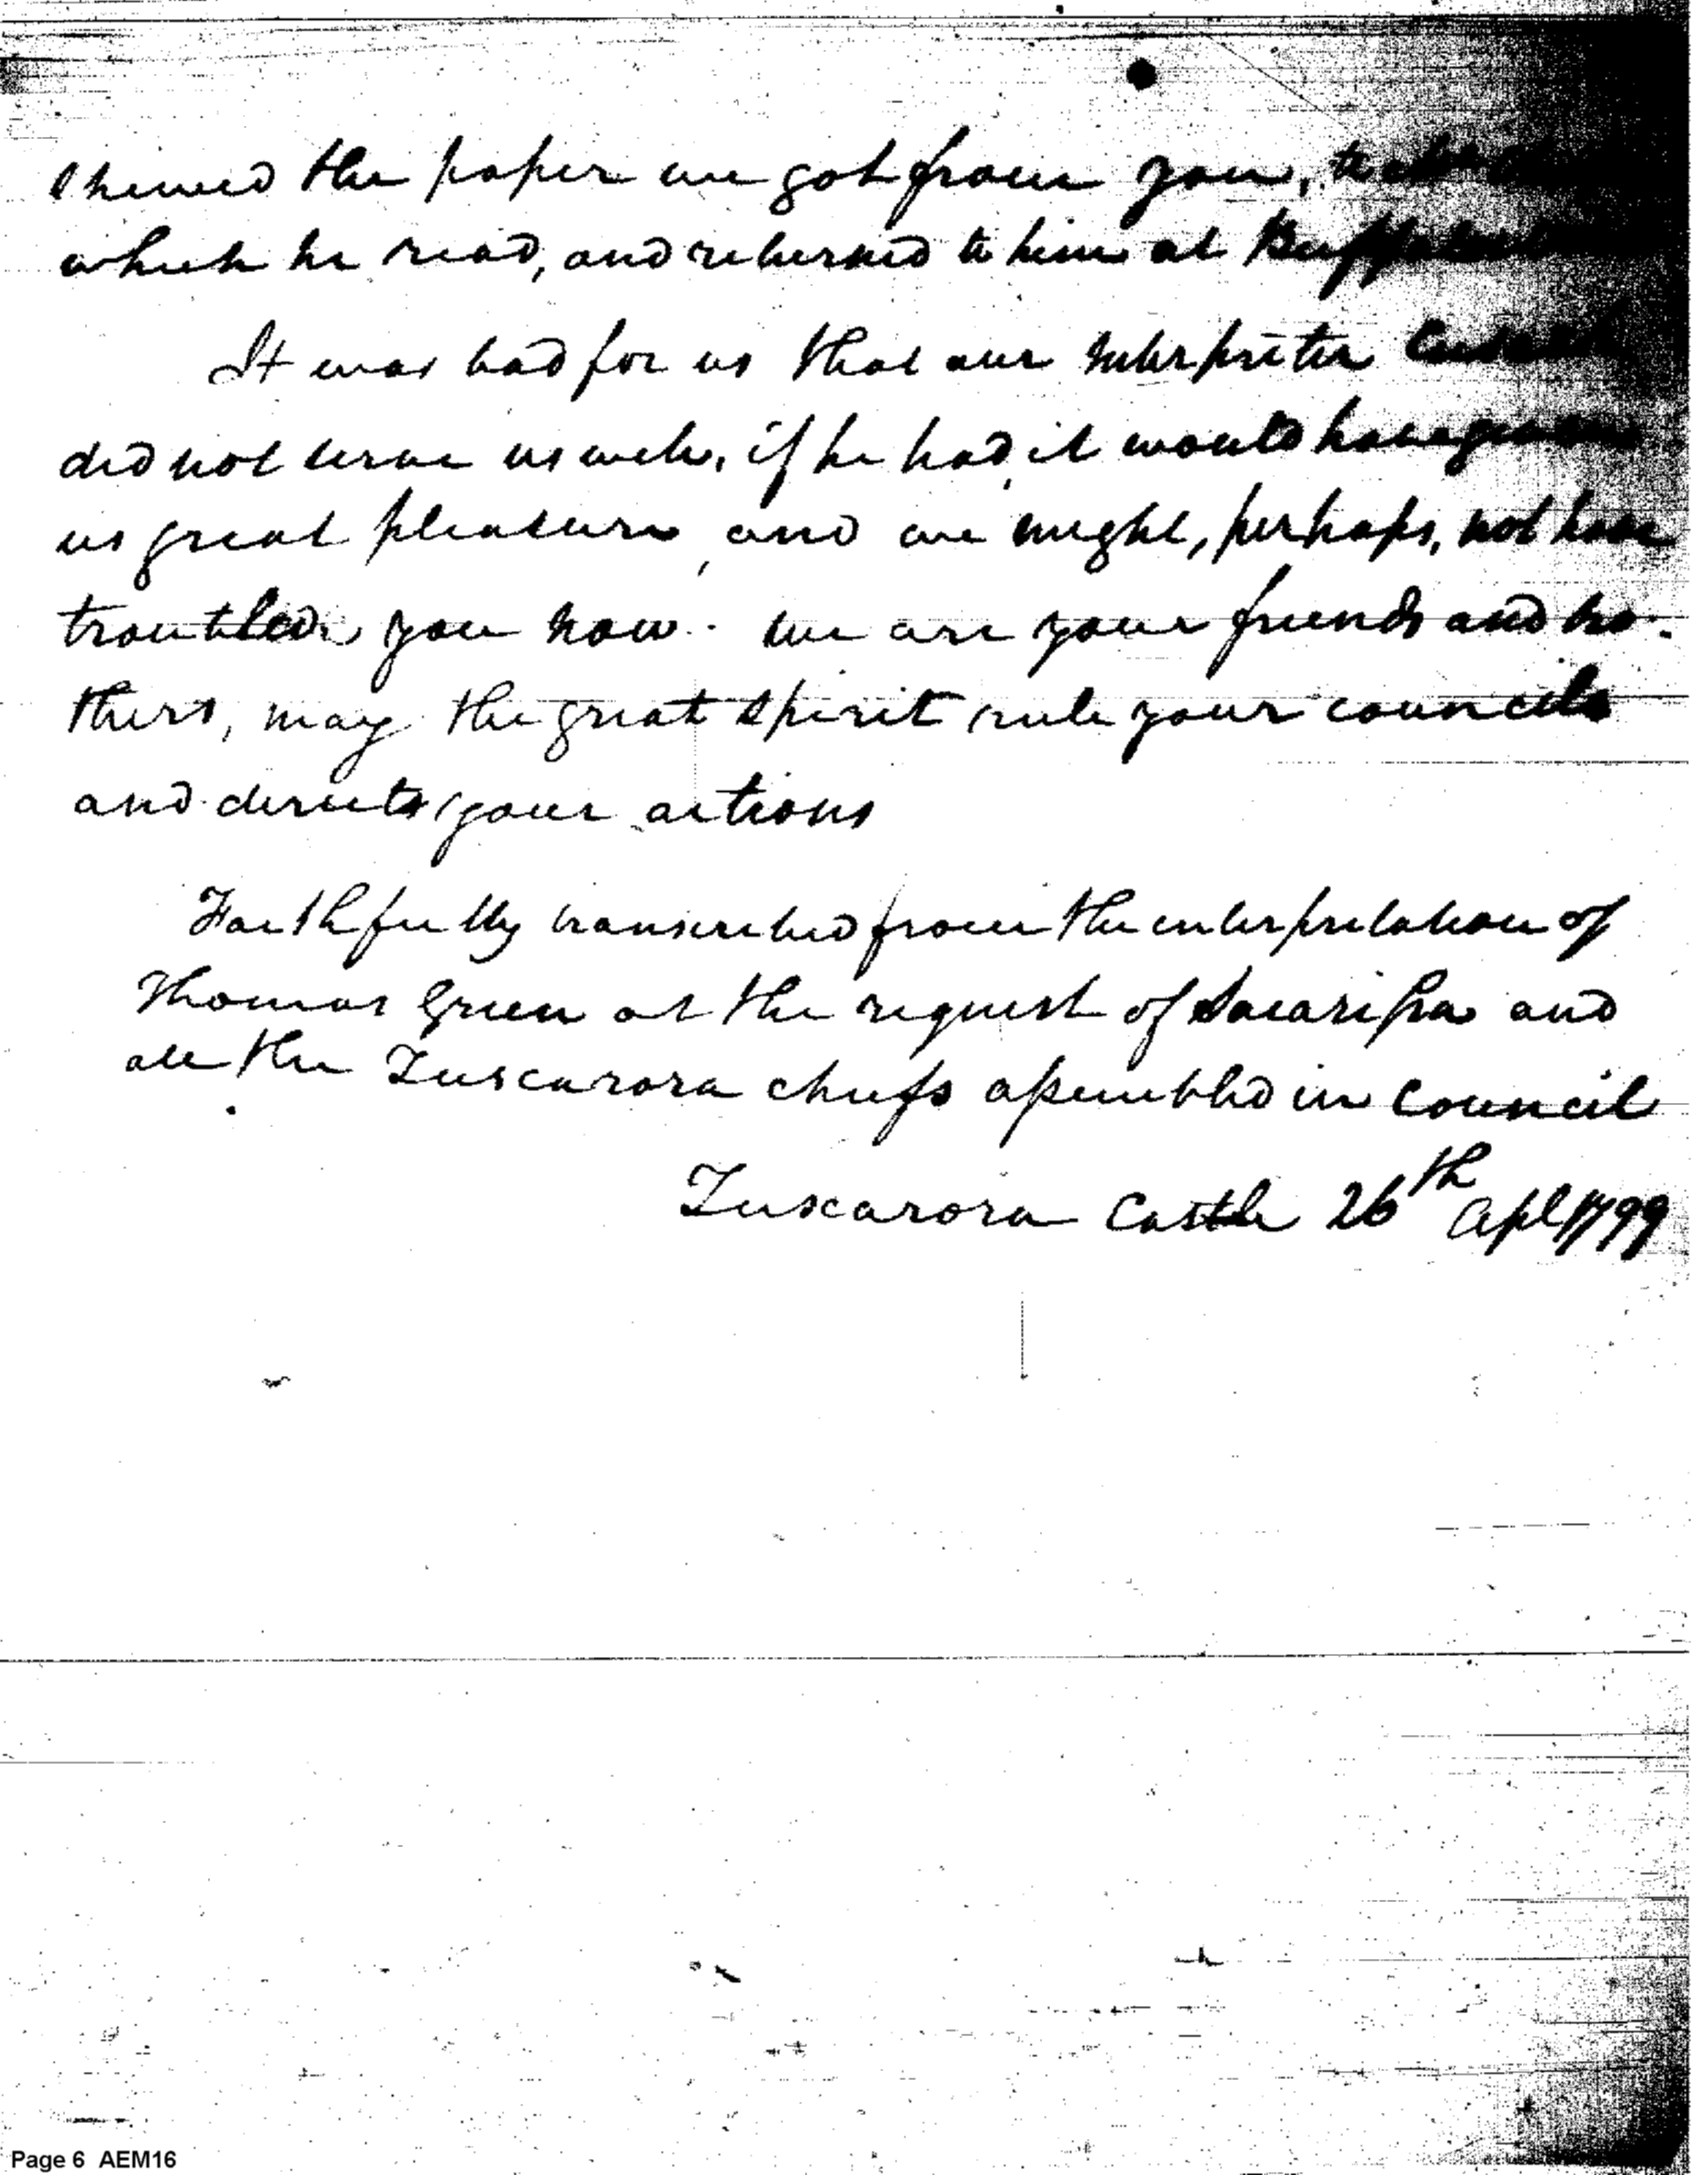 shewed the paper we got from you, to
which he read, and returned to him at
It was bad for us that our interpreter
did not serve us well, if he had, it would have given
us great pleasure, and we might, perhaps, not have
troubled you now. we are your friends and bro-
thers, may the great Spirit rule your councils
and directs your actions
Faithfully transcribed from the interpretation of
Thomas Green at the request of Sacarissa and
all the Tuscarora chiefs assembled in Council
Tuscarora Castle 26th Apl 1799
Page 6 AEM16